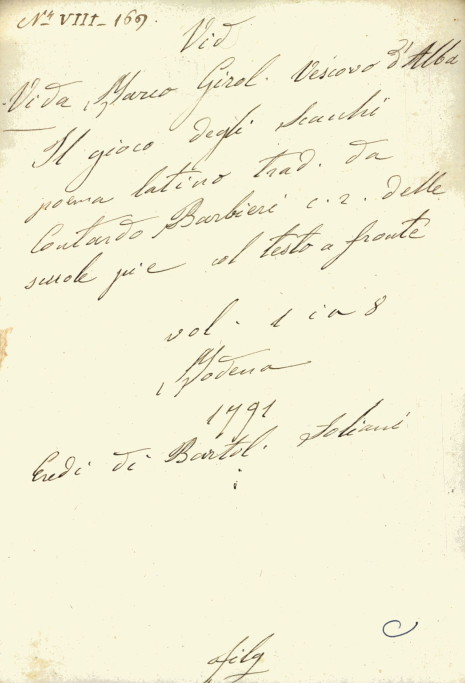 Nr. VIII - 169.
Vid
Vida Marco Girol. Vescovo d'Alba
Il gioco degli Scacchi
poema latino trad. da
Contardo Barbieri c. r. delle
scuole pie col testo a fronte
vol. 1 in 8
Modena
1791
Eredi di Bartol. Soliani
filg